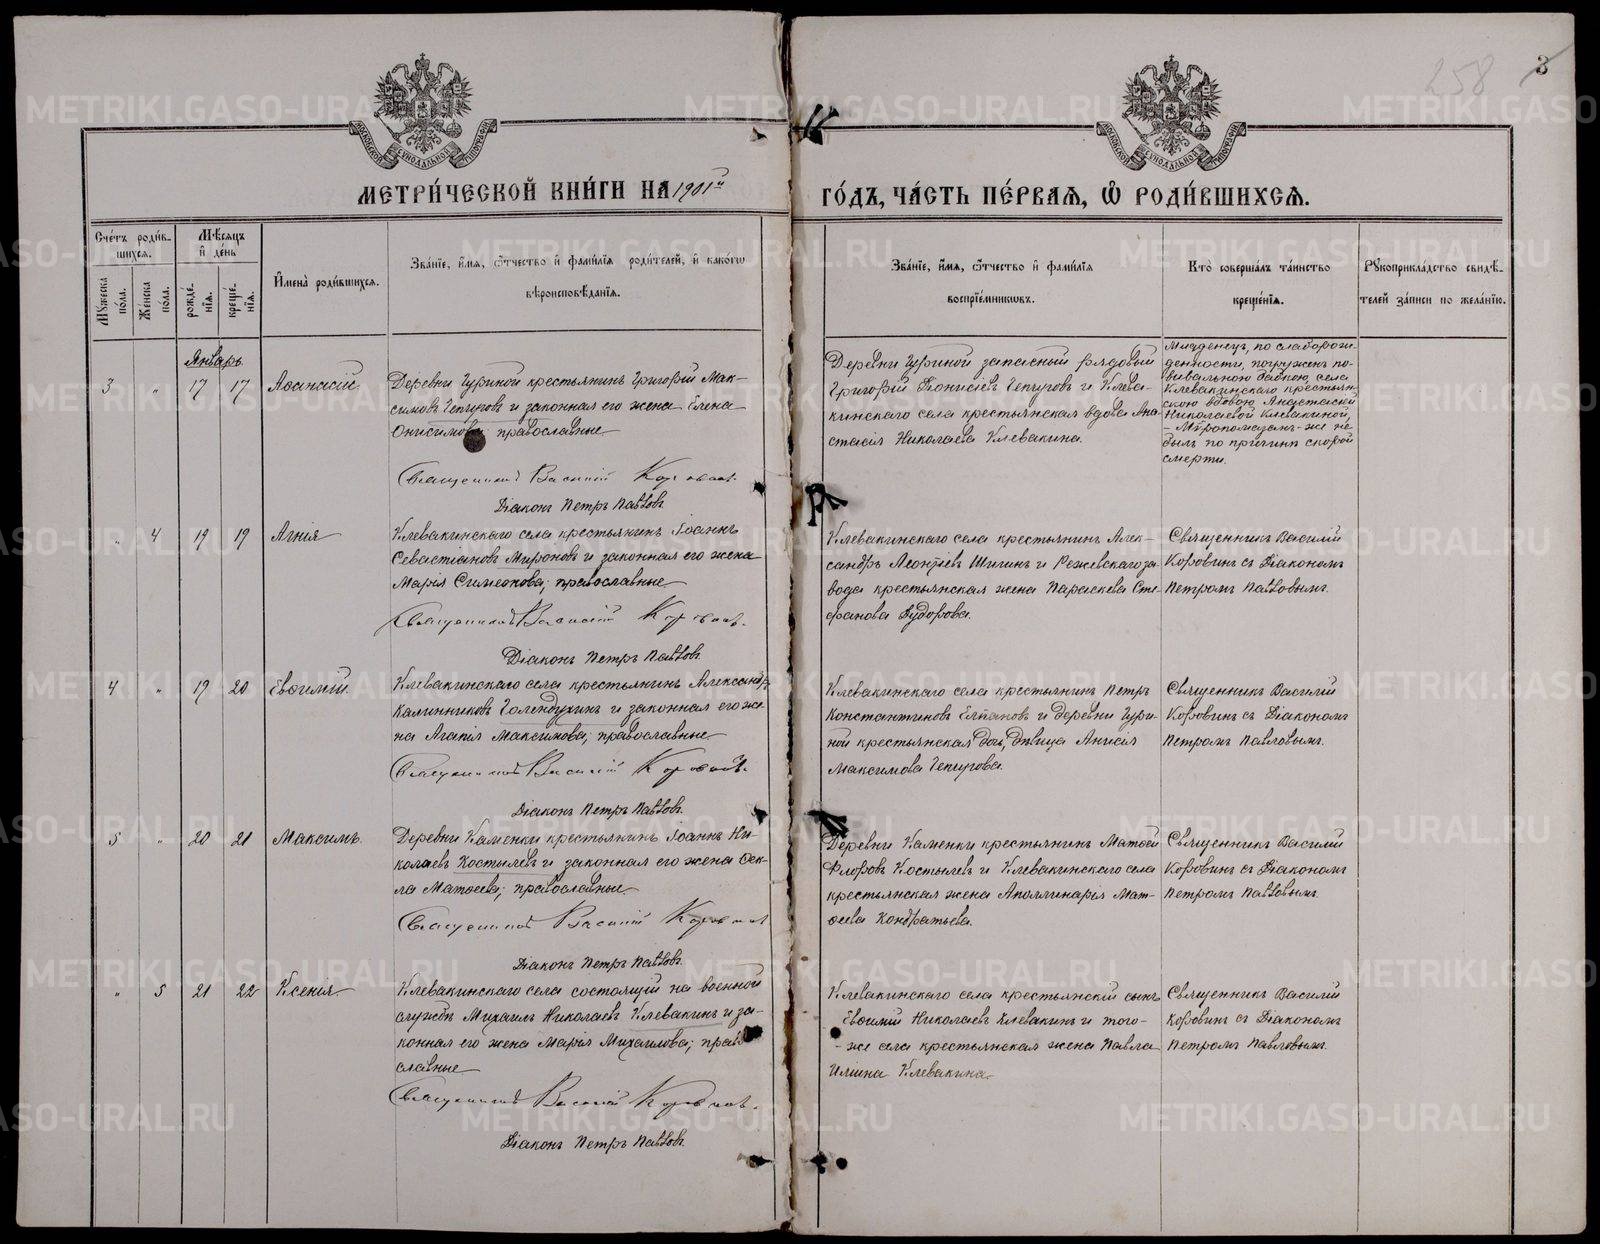 258
3
МОСКОВСКОЙ СѴНОДАЛЬНОЙ ТИПОГРАФІИ
МОСКОВСКОЙ СѴНОДАЛЬНОЙ ТИПОГРАФІИ
МЕТРИ́ЧЕСКОЙ КНИ́ГИ НА 1901й
ГО́ДЪ, ЧА́СТЬ ПЕ́РВАѦ, Ѡ҆ РОДИ́ВШИХСѦ.
Сче́тъ роди́в-
шихсѧ.
Мꙋжеска по́ла.
Же́нска по́ла.
Мѣ́сѧцъ и҆ де́нь
рожде́-нїѧ.
креще́-нїѧ.
И҆мена̀ роди́вшихсѧ.
Зва́нїе, и҆́мѧ, ѻ҆́тчество и҆ фами́лїѧ роди́телей, и҆ како́гѡ
вѣроисповѣ́данїѧ.
Зва́нїе, и҆́мѧ, ѻ҆́тчество и҆ фами́лїѧ
воспрїе́мникѡвъ.
Кто̀ соверша́лъ та́инство
креще́нїѧ.
Рꙋкоприкла́дство свидѣ́-
телей за́писи по жела́нїю.
Январь
3 " 17 17 Аѳанасій
Деревни Гуриной крестьянинъ Григорій Мак-
симовъ Чепчуговъ и законная его жена Елена
Онисимова; православные
Священникъ Василій Коровинъ.
Діаконъ Петръ Павловъ.
Деревни Гуриной запасный рядовый
Григорій Конисіевъ Чепчуговъ и Клева-
кинскаго села крестьянская вдова Ана-
стасія Николаева Клевакина.
Младенецъ, по слаборож-
денности, погруженъ по-
вивальною бабкою, села
Клевакинскаго крестьян-
скою вдовою Анастасіей
Николаевой Клевакиной
– Мѵропомазанъ-же не
былъ по причинѣ скорой
смерти.
" 4 19 19 Агнія
Клевакинскаго села крестьянинъ Іоаннъ
Севастіановъ Мироновъ и законная его жена
Марія Симеонова; православные
Священникъ Василій Коровинъ.
Діаконъ Петръ Павловъ.
Клевакинскаго села крестьянинъ Алек-
сандръ Леонтіевъ Шигинъ и Режевскаго за-
вода крестьянская жена Параскева Сте-
фанова
Священникъ Василій
Коровинъ съ Діакономъ
Петромъ Павловымъ.
4 " 19 20 Евѳимій
Клевакинскаго села крестьянинъ Александръ
Калинниковъ Голендухинъ и законная его же-
на Агапія Максимова; православные
Священникъ Василій Коровинъ.
Діаконъ Петръ Павловъ.
Клевакинскаго села крестьянинъ Петръ
Константиновъ Елпановъ и деревни Гури-
ной крестьянская дочь, дѣвица Анисія
Максимова Чепчугова.
Священникъ Василій
Коровинъ съ Діакономъ
Петромъ Павловымъ.
5 " 20 21 Максимъ.
Деревни Каменки крестьянинъ Іоаннъ Ни-
колаевъ Костылевъ и законная его жена Ѳек-
ла Матѳеева; православные
Священникъ Василій Коровинъ
Діаконъ Петръ Павловъ.
Деревни Каменки крестьянинъ Матѳей
Флоровъ Костылевъ и Клевакинскаго села
крестьянская жена Аполлинарія Мат-
ѳеева Кондратьева.
Священникъ Василій
Коровинъ съ Діакономъ
Петромъ Павловымъ.
" 5 21 22 Ксенія.
Клевакинскаго села состоящій на военной
службѣ Михаилъ Николаевъ Клевакинъ и за-
конная его жена Марія Михаилова; право-
славные
Священникъ Василій Коровинъ.
Діаконъ Петръ Павловъ.
Клевакинскаго села крестьянскій сынъ
Евѳимій Николаевъ Клевакинъ и того-
же села крестьянская жена Павла
Ильина Клевакина
Священникъ Василій
Коровинъ съ Діакономъ
Петромъ Павловымъ.
METRIKI.GASO-URAL.RU